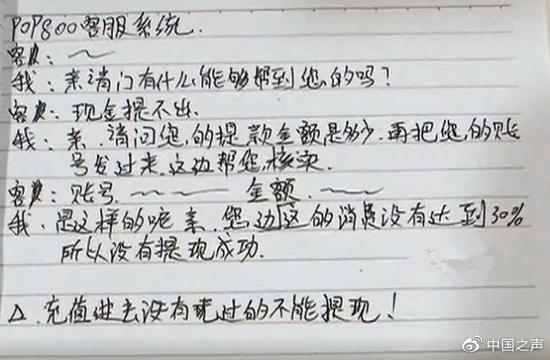 POP800客服系统.
客户: ~
我: 亲请门有什么能够帮到您的吗?
客户: 现金提不出.
我: 亲.请问您,的提款金额是多少.再把您,的账
号发过来.这边帮您,核实
客户: 账号.~~ 金额.~~
我.是这样的呢亲.您边这的消费没有达到30%
所以没有提现成功.
△.充值进去没有玩过的不能提现!
中国之声